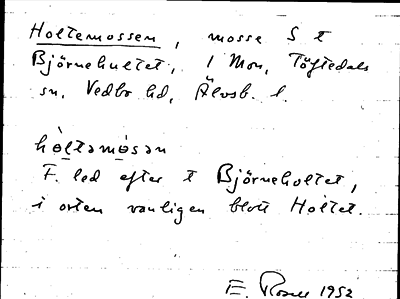 Holtemossen, mosse S t
Björneholtet, 1 Mon, Töftedals
sn, Vedbo hd, Älvsb. l.
hòltəmòsən
F. led efter t Björneholtet,
i orten vanligen blott Holtet.
E. 1952